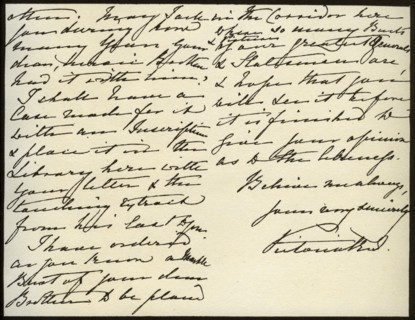 other. Many Tack
you during how
many hours your
dear heroic Brother
had it with him?
I shall have a
Case made for it
with an Inscription
& place it in the
Library here with
your letter & the
touching extract
from his last to you.
I have ordered
as you know a Marble
Bust of your dear
Brother to be placed
in the Corridor here
where so many Busts
& Pictures
of our greatest Generals
& Statesmen are,
& hope that you
will see it before
it is finished to
give your opinion
as to the likeness.
Believe me always,
yours very sincerely
Victoria R.I.